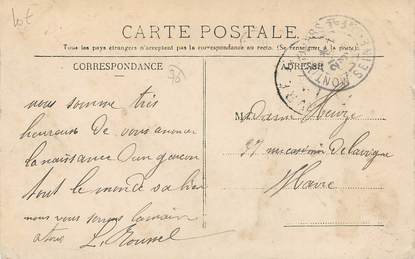 lot
CARTE POSTALE
Tous les pays étrangers n'acceptent pas la correspondance au recto. (Se renseigner à la poste).
CORRESPONDANCE
ADRESSE
vous somme très
heureuse de vous
la naissance d'un garcon
tout le monde va bien
nous vous serrons la main
a tous L. Roussel
Madame
27 rue casimir delavigne
Havre